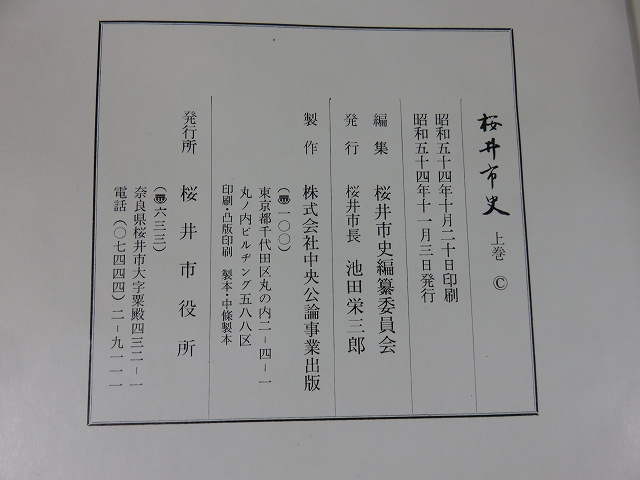 桜井市史 上巻 ©
昭和五十四年十月二十日印刷
昭和五十四年十一月三日発行
編集 桜井市史編纂委員会
発行 桜井市長 池田栄三郎
製作 株式会社中央公論事業出版
(〠一〇〇)
東京都千代田区丸の内二-四-一
丸ノ内ビルヂング五八八区
印刷・凸版印刷 製本・中條製本
発行所 桜井市役所
(〠六三三)
奈良県桜井市大字粟殿四三二-一
電話(〇七四四四)二-九一一一